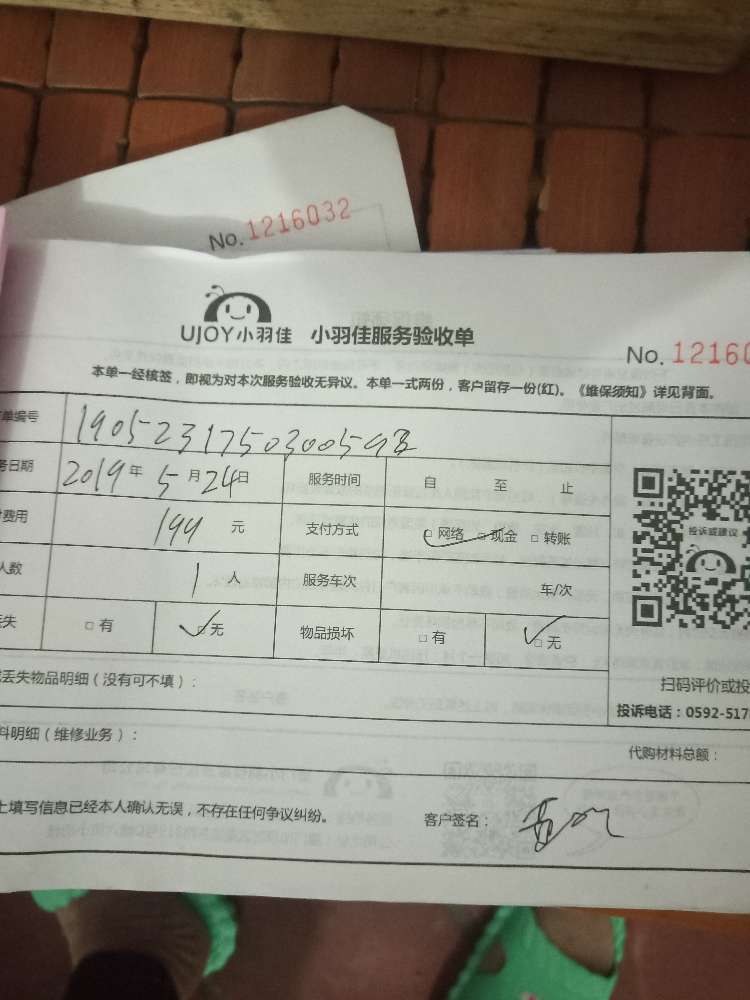 No. 1216032
UJOY小羽佳 小羽佳服务验收单
No. 12160
本单一经核签，即视为对本次服务验收无异议。本单一式两份，客户留存一份(红)。《维保须知》详见背面。
单编号 1905231750300593
务日期 2019年 5月24日 服务时间 自 至 止
费用 199 元 支付方式 □网络 □现金 □转账
投诉或建议
人数 1 人 服务车次 车/次
丢失 □有 □无 物品损坏 □有 □无
丢失物品明细（没有可不填）：
扫码评价或投
投诉电话：0592-517
料明细（维修业务）：
代购材料总额：
上填写信息已经本人确认无误，不存在任何争议纠纷。 客户签名：